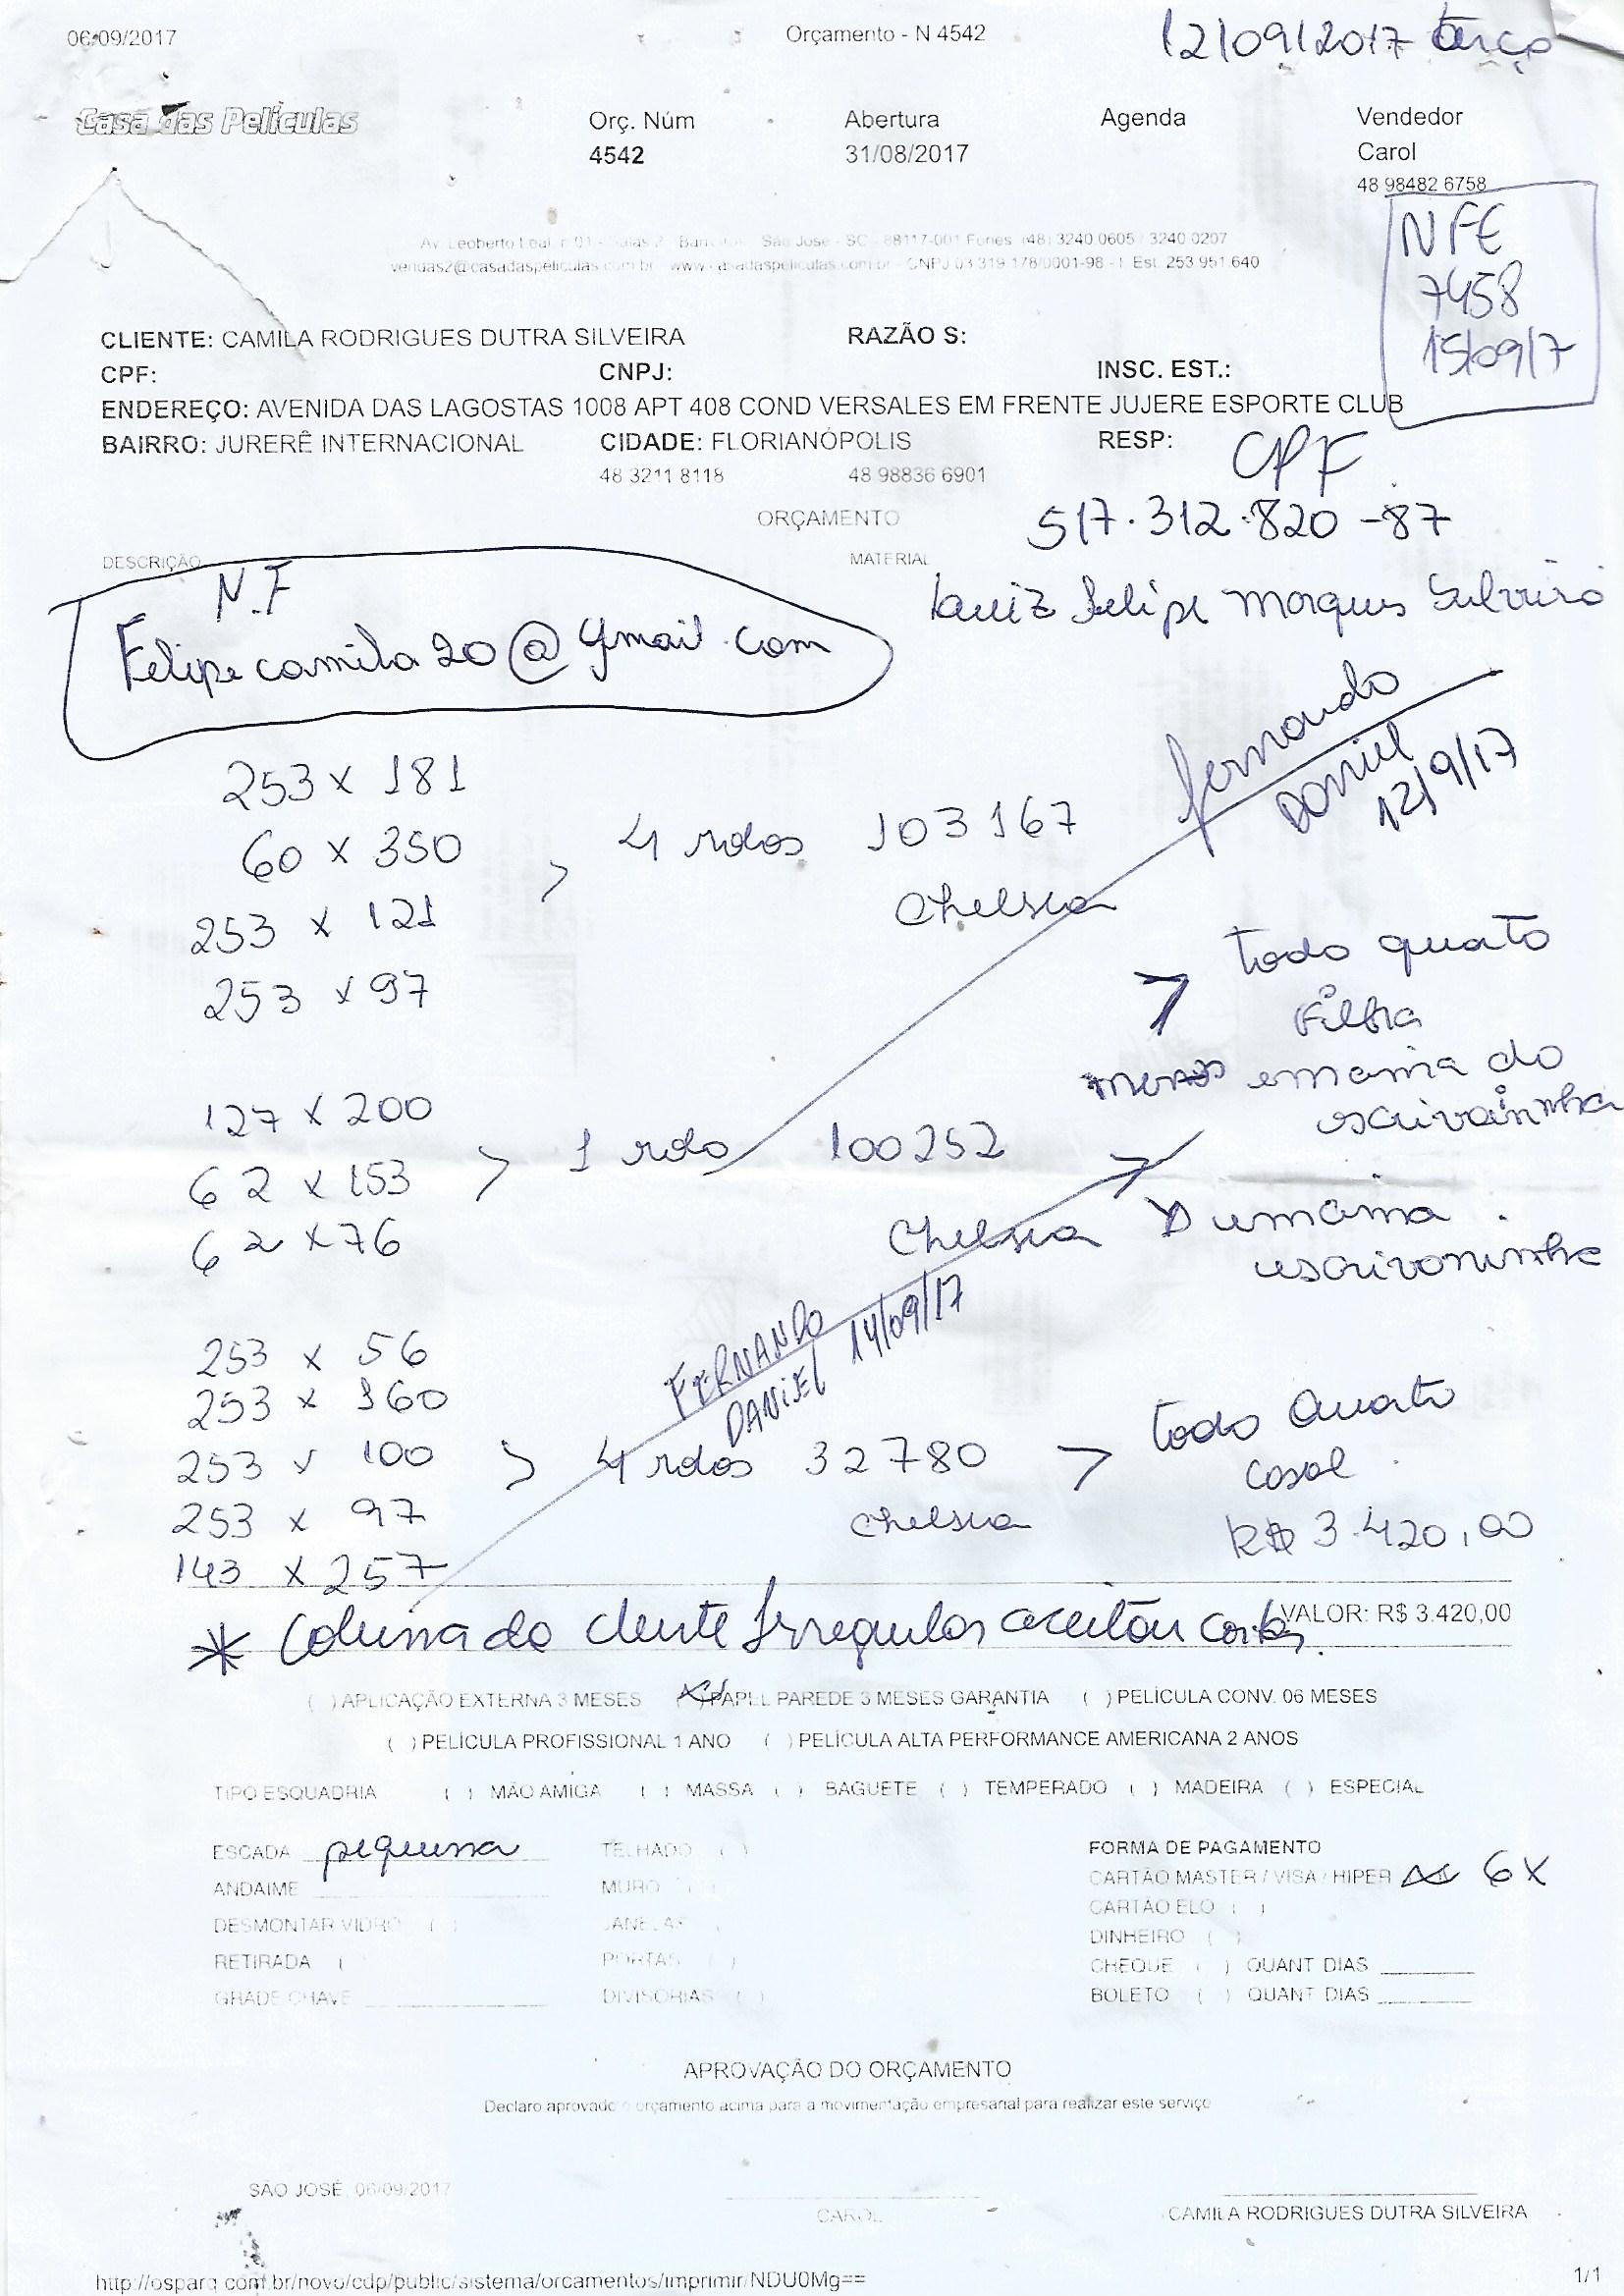 06/09/2017
Orçamento - N 4542
12/09/2017 terça
Casa das Películas
Orç. Núm
4542
Abertura
31/08/2017
Agenda
Vendedor
Carol
48 98482 6758
NFE
7458
15/09/7
Av. Leoberto Leal, n 01 - Salas 2 São José - SC - 88117-001 Fones (48) 3240 0605 / 3240 0207
vendas2@casadaspeliculas.com.br - www.casadaspeliculas.com.br - CNPJ 03 319 178/0001-98 - I. Est. 253 951 640
CLIENTE: CAMILA RODRIGUES DUTRA SILVEIRA RAZÃO S:
CPF: CNPJ: INSC. EST.:
ENDEREÇO: AVENIDA DAS LAGOSTAS 1008 APT 408 COND VERSALES EM FRENTE JUJERE ESPORTE CLUB
BAIRRO: JURERÊ INTERNACIONAL CIDADE: FLORIANÓPOLIS RESP:
48 3211 8118 48 98836 6901
CPF
517.312.820-87
ORÇAMENTO
DESCRIÇÃO MATERIAL
Luiz Felipe Marques Silveira
N.F
Felipecamila20@gmail.com
Fernando
Daniel
12/9/17
253 x 181
60 x 350
253 x 121
253 x 97
> 4 rolos 103167
Chelsea
> todo quarto
Filha
menos em cima da
escrivaninha
127 x 200
62 x 153
62 x 76
> 1 rolo 100252
Chelsea
> em cima
escrivaninha
FERNANDO
DANIEL 14/09/17
253 x 56
253 x 160
253 x 100
253 x 97
143 x 257
> 4 rolos 32780
Chelsea
> todo Quarto
casal
R$ 3.420,00
VALOR: R$ 3.420,00
* Coluna do cliente Irregular
( ) APLICAÇÃO EXTERNA 3 MESES (X) PAPEL PAREDE 3 MESES GARANTIA ( ) PELÍCULA CONV. 06 MESES
( ) PELÍCULA PROFISSIONAL 1 ANO ( ) PELÍCULA ALTA PERFORMANCE AMERICANA 2 ANOS
TIPO ESQUADRIA ( ) MÃO AMIGA ( ) MASSA ( ) BAGUETE ( ) TEMPERADO ( ) MADEIRA ( ) ESPECIAL
ESCADA pequena
ANDAIME
DESMONTAR VIDRO ( )
RETIRADA (
GRADE CHAVE
TELHADO ( )
MURO ( )
JANELAS
PORTAS ( )
DIVISORIAS ( )
FORMA DE PAGAMENTO
CARTÃO MASTER / VISA / HIPER (X) 6X
CARTÃO ELO ( )
DINHEIRO ( )
CHEQUE ( ) QUANT DIAS
BOLETO ( ) QUANT DIAS
APROVAÇÃO DO ORÇAMENTO
Declaro aprovado o orçamento acima para a movimentação empresarial para realizar este serviço
SÃO JOSÉ, 06/09/2017
CAROL
CAMILA RODRIGUES DUTRA SILVEIRA
http://osparq.com.br/novo/cdp/public/sistema/orcamentos/imprimir/NDU0Mg==
1/1